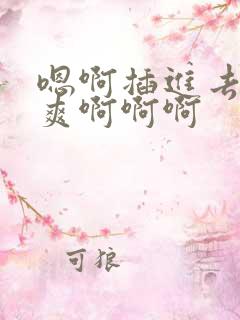 嗯啊插进去
爽啊啊啊
可狼